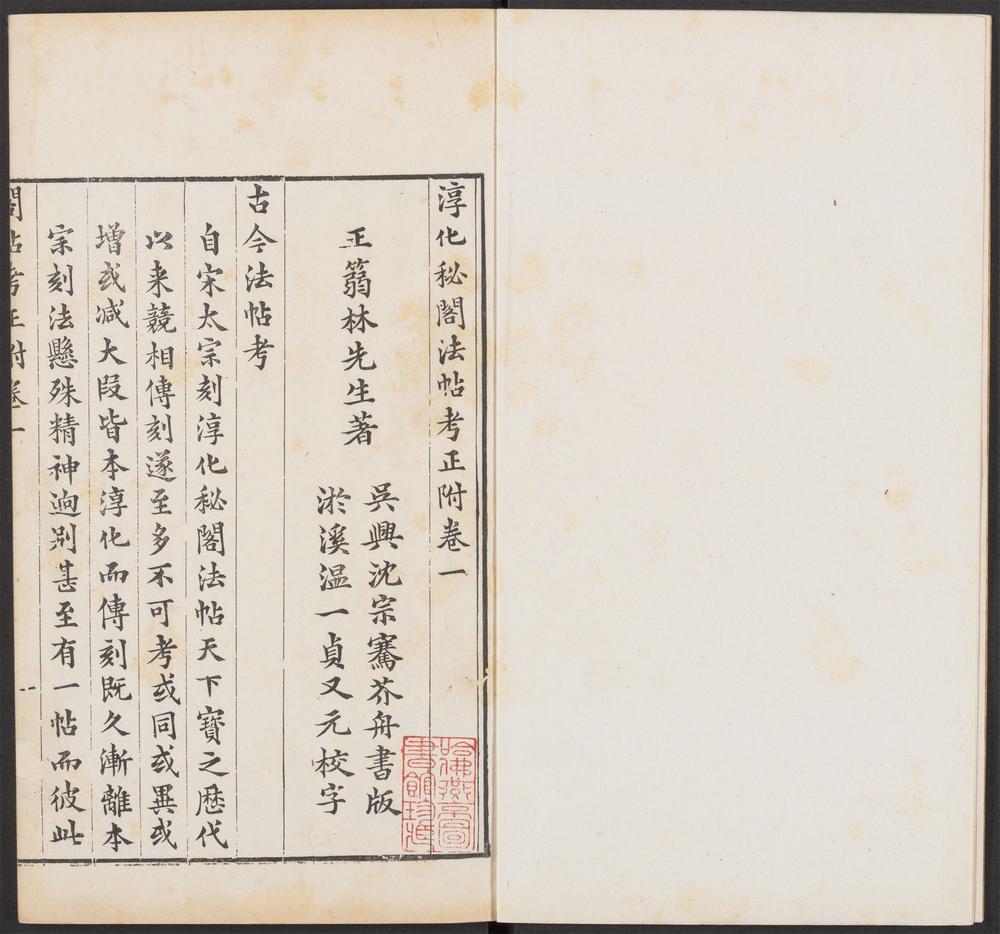 淳化秘閣法帖考正附卷一
正蒻林先生著
吳興沈宗騫芥舟書版
淤溪溫一貞又元校字
古今法帖考
自宋太宗刻淳化秘閣法帖天下寶之歷代
以来競相傳刻遂至多不可考或同或異或
增或减大段皆本淳化而傳刻既久漸離本
宗刻法懸殊精神逈别甚至有一帖而彼此
閣帖考正附卷一
哈佛燕京圖書館珍藏